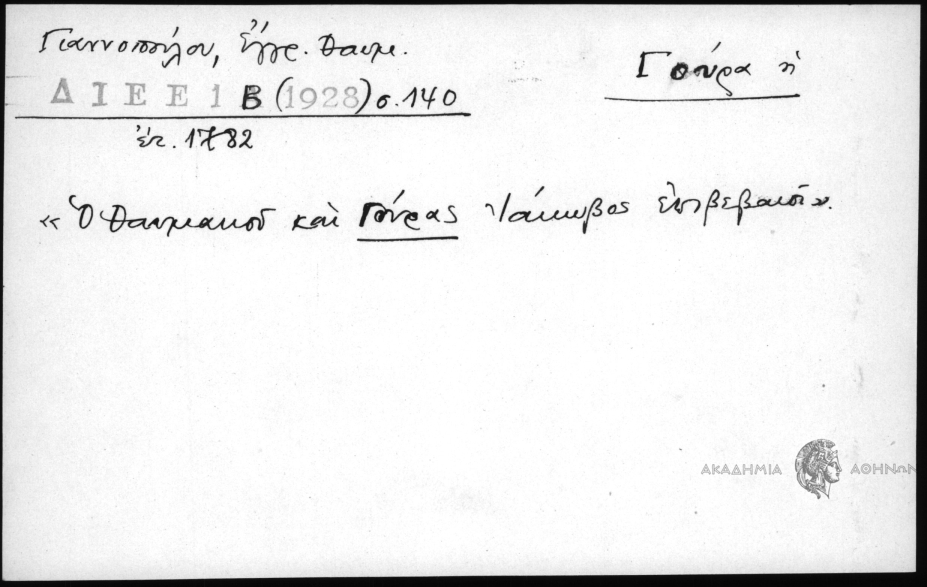 Γιαννοπούλου, Ἔγγρ. Θαυμ.
Γούρα ἡ
ΔΙΕΕ 1 Β (1928) σ. 140
ἐτ. 1782
«Ὁ Θαυμακοῦ καὶ Γούρας Ἰάκωβος ἐπιβεβαιοῖ».
ΑΚΑΔΗΜΙΑ ΑΘΗΝΩΝ